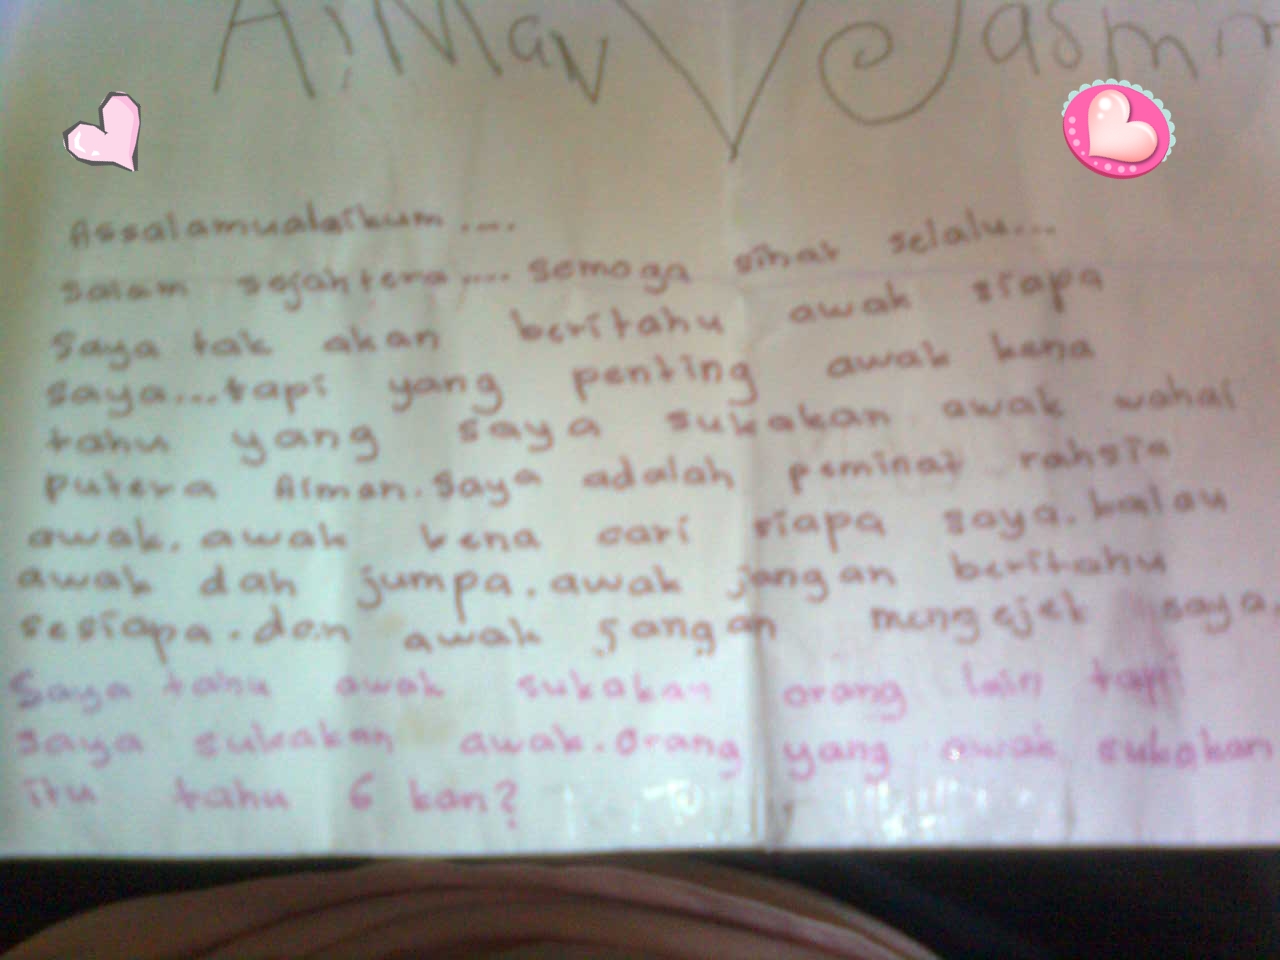 Aiman Jasmin
Assalamualaikum....
salam sejahtera.... semoga sihat selalu...
saya tak akan beritahu awak siapa
saya...tapi yang penting awak kena
tahu yang saya sukakan awak wahai
putera Aiman. saya adalah peminat rahsia
awak. awak kena cari siapa saya. kalau
awak dah jumpa. awak jangan beritahu
sesiapa. dan awak jangan mengejek saya.
Saya tahu awak sukakan orang lain tapi
saya sukakan awak. orang yang awak sukakan
itu tahu 6 kan?